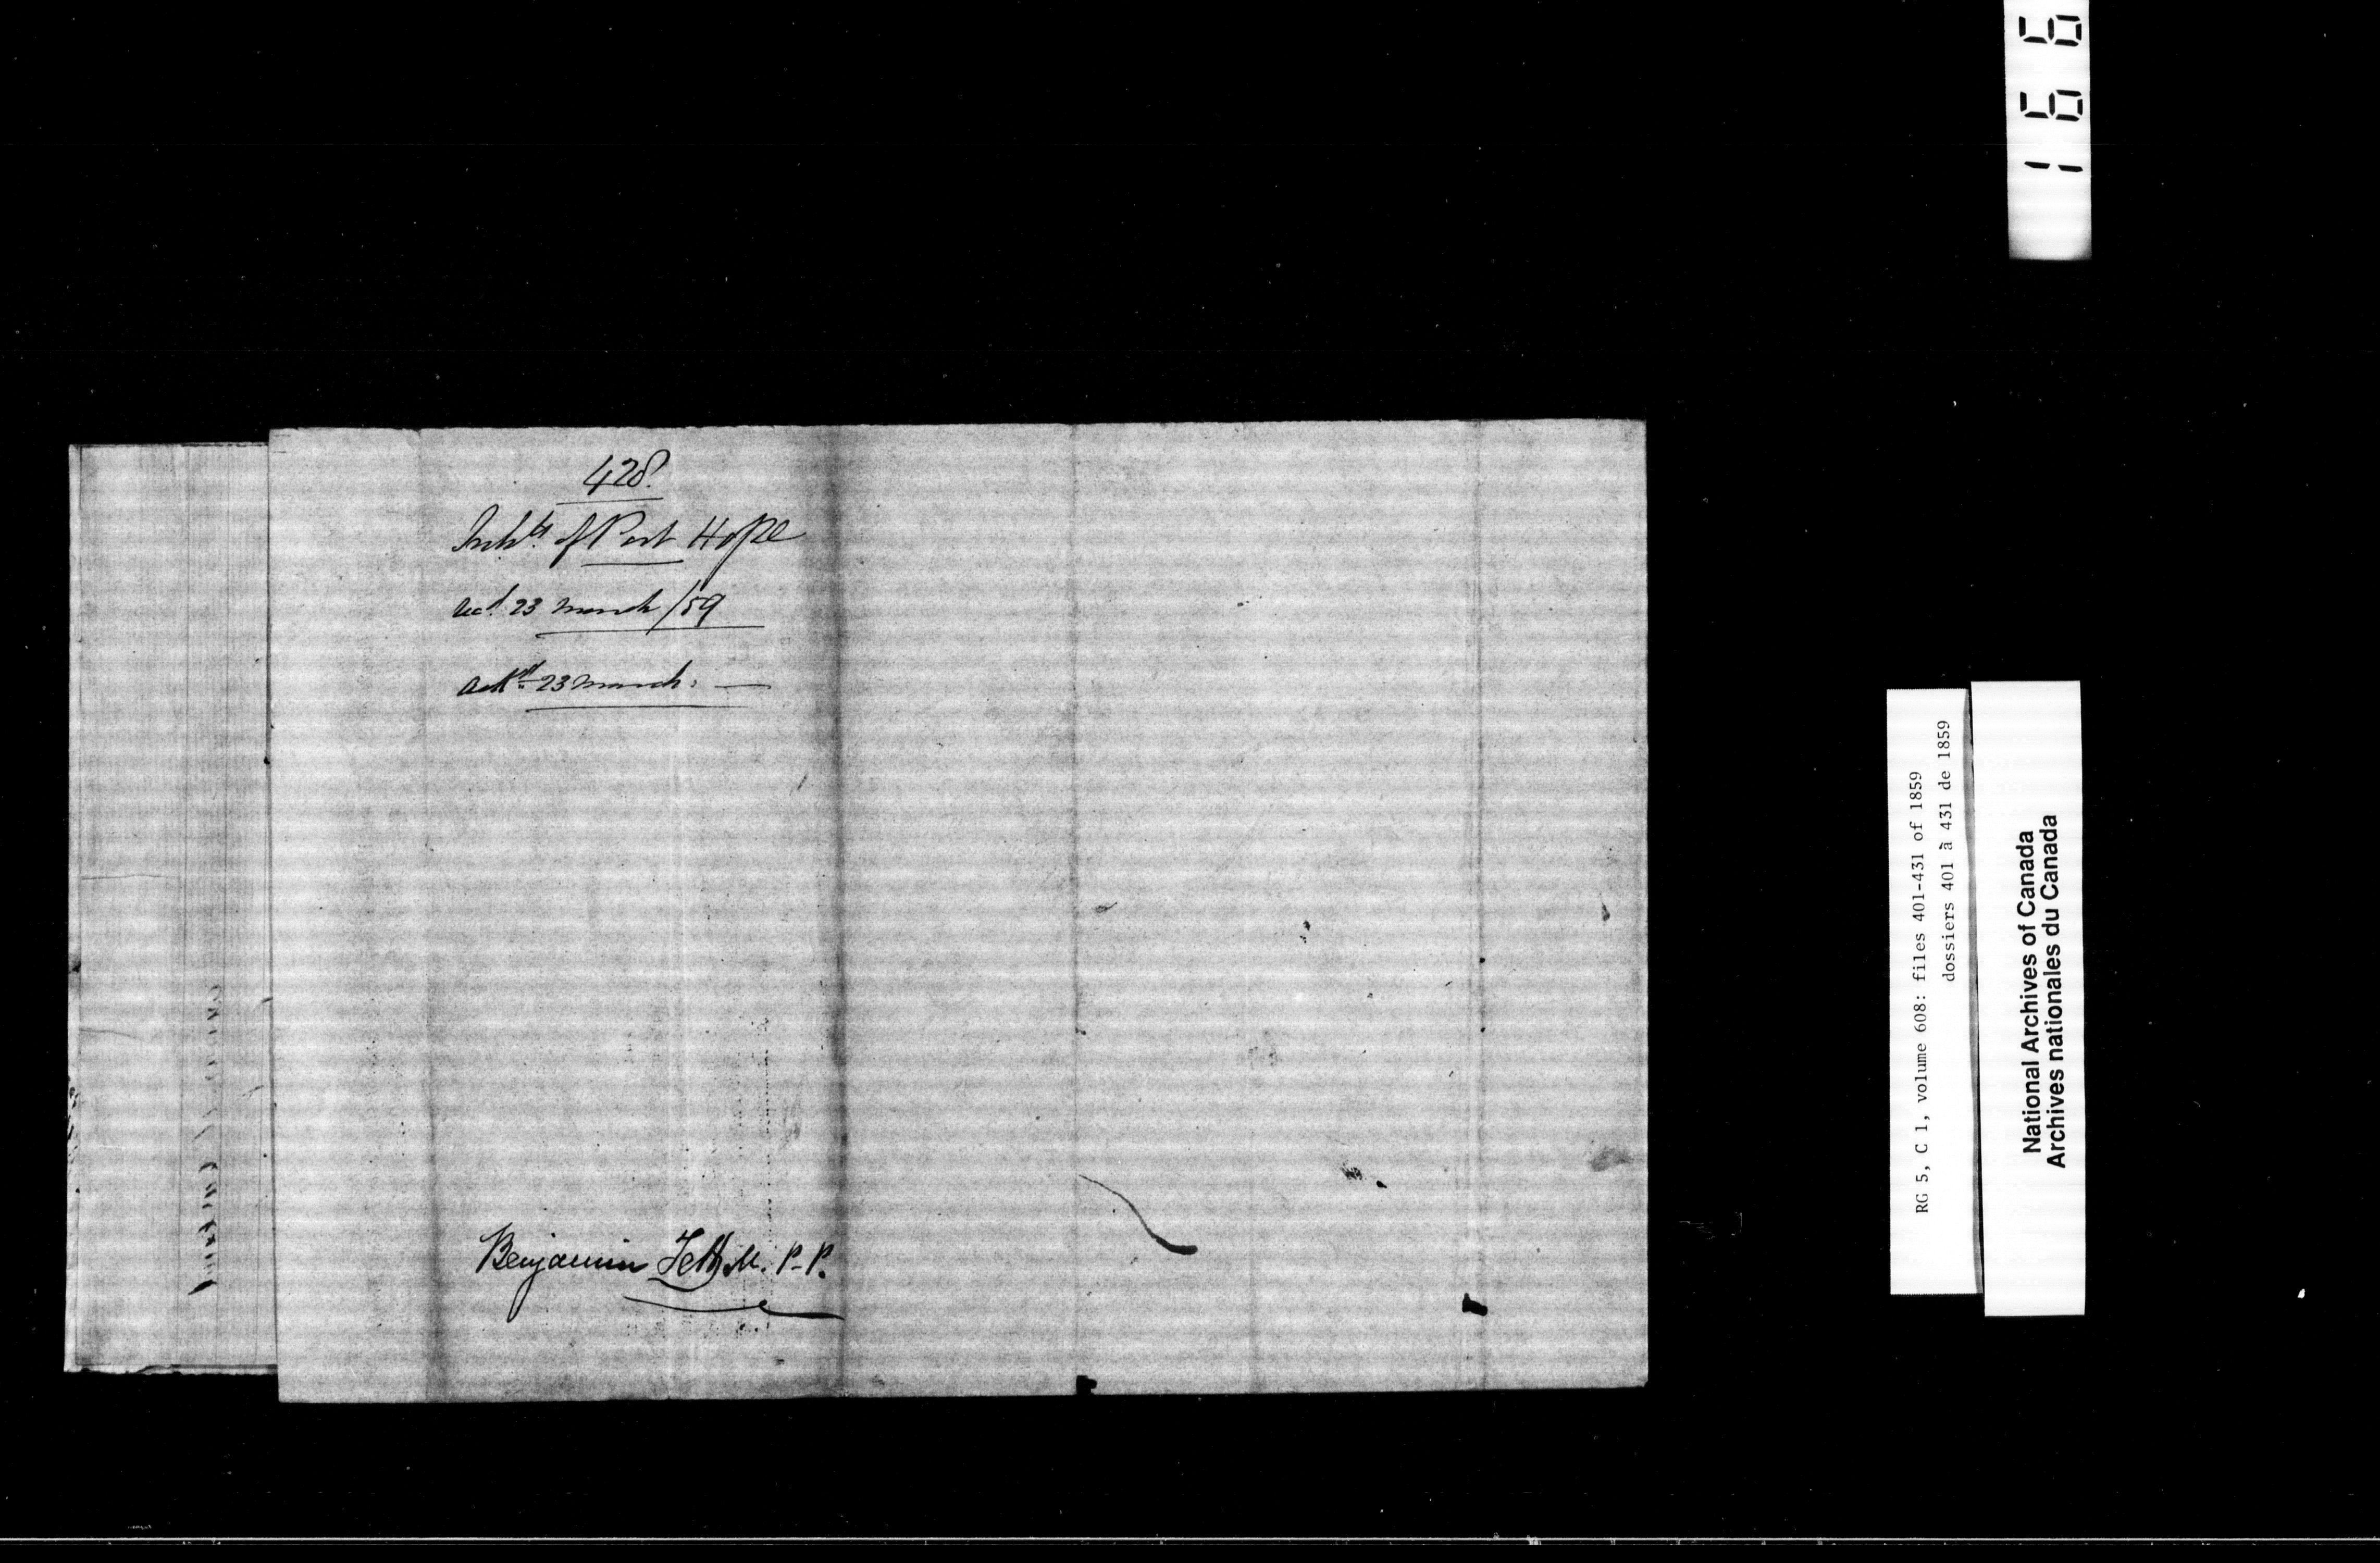 428.
Inhts. of Port Hope
Recd. 23 March/59
Ackd. 23 March. —
Benjamin Tett M. P. P.
RG 5, C 1, volume 608: files 401-431 of 1859
dossiers 401 à 431 de 1859
National Archives of Canada
Archives nationales du Canada